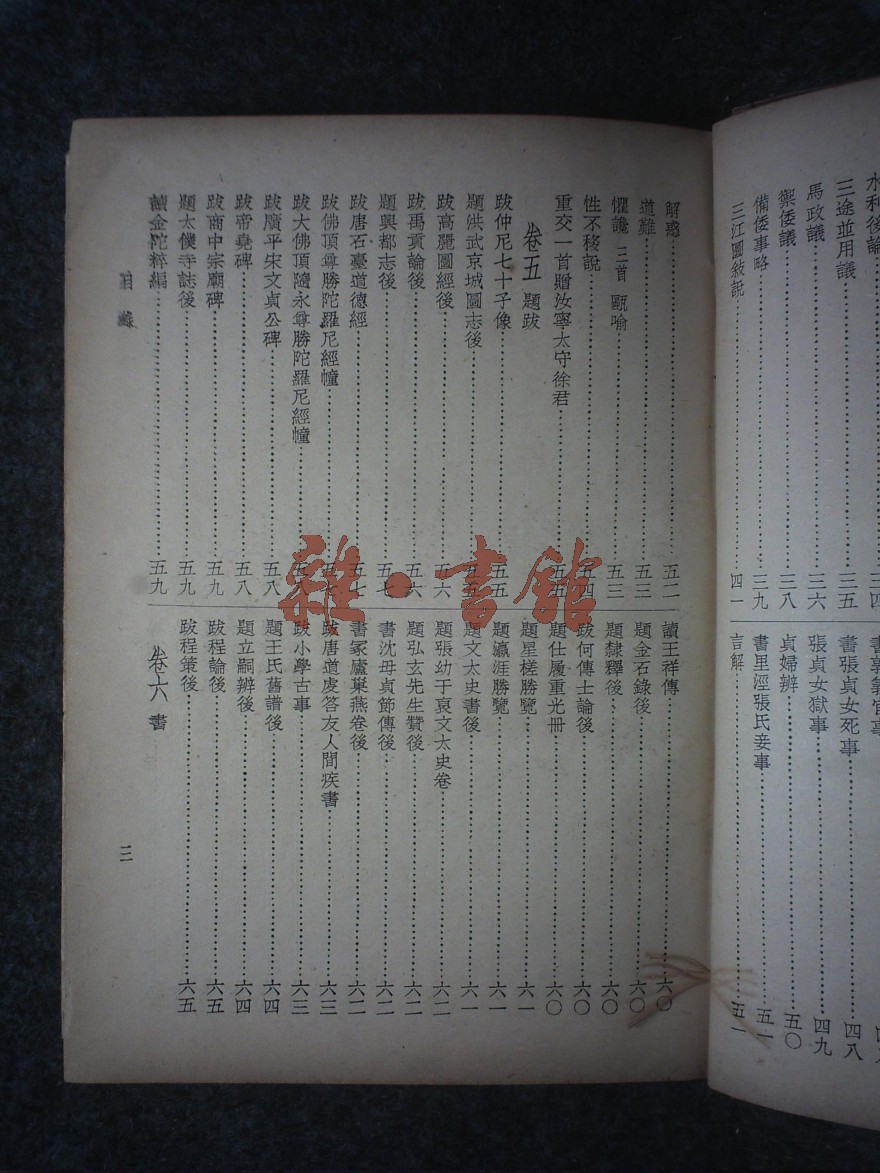 水利後論 三四
三途並用議 三五
馬政議 三六
禦倭議 三八
備倭事略 三九
三江圖敍說 四一
書張貞女死事 四八
張貞女獄事 四九
貞婦辨 五〇
書里涇張氏妾事 五一
言解 五一
解惑 五二
道難 五三
懼讒 三首 甌喻 五三
性不移說 五四
重交一首贈汝寧太守徐君 五五
卷之五 題跋
跋仲尼七十子像 五五
題洪武京城圖志後 五五
跋高麗圖經後 五六
跋禹貢論後 五六
題興都志後 五七
跋唐石臺道德經 五七
跋佛頂尊勝陀羅尼經幢 五七
跋大佛頂隨永尊勝陀羅尼經幢 五八
跋廣平宋文貞公碑 五八
跋帝堯碑 五八
跋商中宗廟碑 五九
題太僕寺誌後 五九
讀金陀粹編 五九
讀王祥傳 六〇
題金石錄後 六〇
題隸釋後 六〇
跋何傳士論後 六〇
題仕履重光冊 六〇
題星槎勝覽 六一
題瀛涯勝覽 六一
題文太史書後 六一
題張幼于哀文太史卷 六二
題弘玄先生贊後 六二
書沈母貞節傳後 六二
書冢廬巢燕卷後 六二
跋唐道虔答友人問疾書 六三
跋小學古事 六三
題王氏舊譜後 六四
題立嗣辨後 六四
跋程論後 六五
跋程策後 六五
卷之六 書
目錄
三
雜·書館